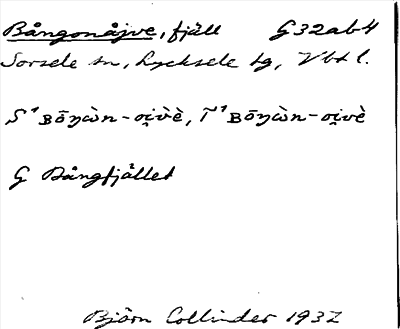 Bångonåjve, fjäll G32ab4
Sorsele sn, Lycksele lg, Vbtl.
S¹ ʙōŋὼn-oi̯vè, T¹ ʙōŋὼn-oi̯vè
G Bångfjället
Björn Collinder 1932